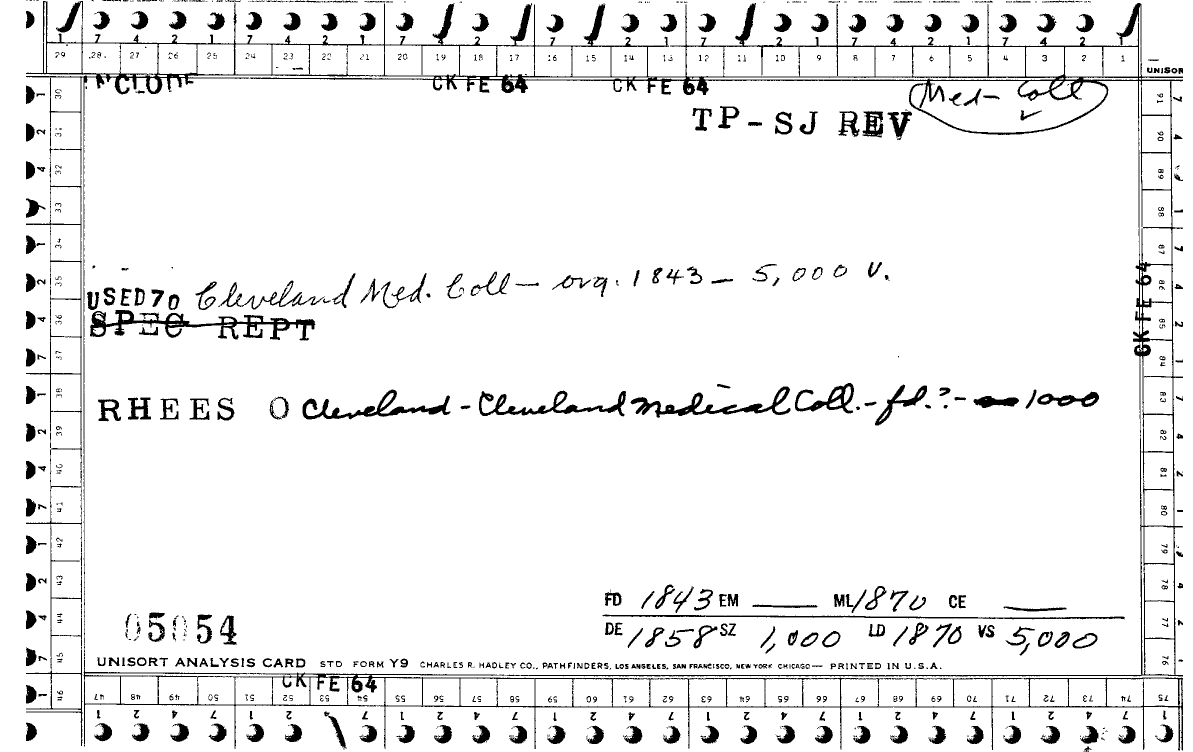 1 7 4 2 1 7 4 2 1 7 4 2 1 7 4 2 1 7 4 2 1 7 4 2 1 7 4 2 1
29 28. 27 26 25 24 23 22 21 20 19 18 17 16 15 14 13 12 11 10 9 8 7 6 5 4 3 2 1 UNISORT
INCLUDE CK FE 64 CK FE 64 Med- Coll
TP-SJ REV
USED70 Cleveland Med. Coll - org. 1843 - 5,000 V.
SPEC REPT
CK FE 64
RHEES O Cleveland - Cleveland Medical Coll. - fd.? - 1000
FD 1843 EM ____ ML 1870 CE ____
05054
DE 1858 SZ 1,000 LD 1870 VS 5,000
UNISORT ANALYSIS CARD STD FORM Y9 CHARLES R. HADLEY CO., PATHFINDERS, LOS ANGELES, SAN FRANCISCO, NEW YORK CHICAGO— PRINTED IN U.S.A.
CK FE 64
47 48 49 50 51 52 53 54 55 56 57 58 59 60 61 62 63 64 65 66 67 68 69 70 71 72 73 74 75